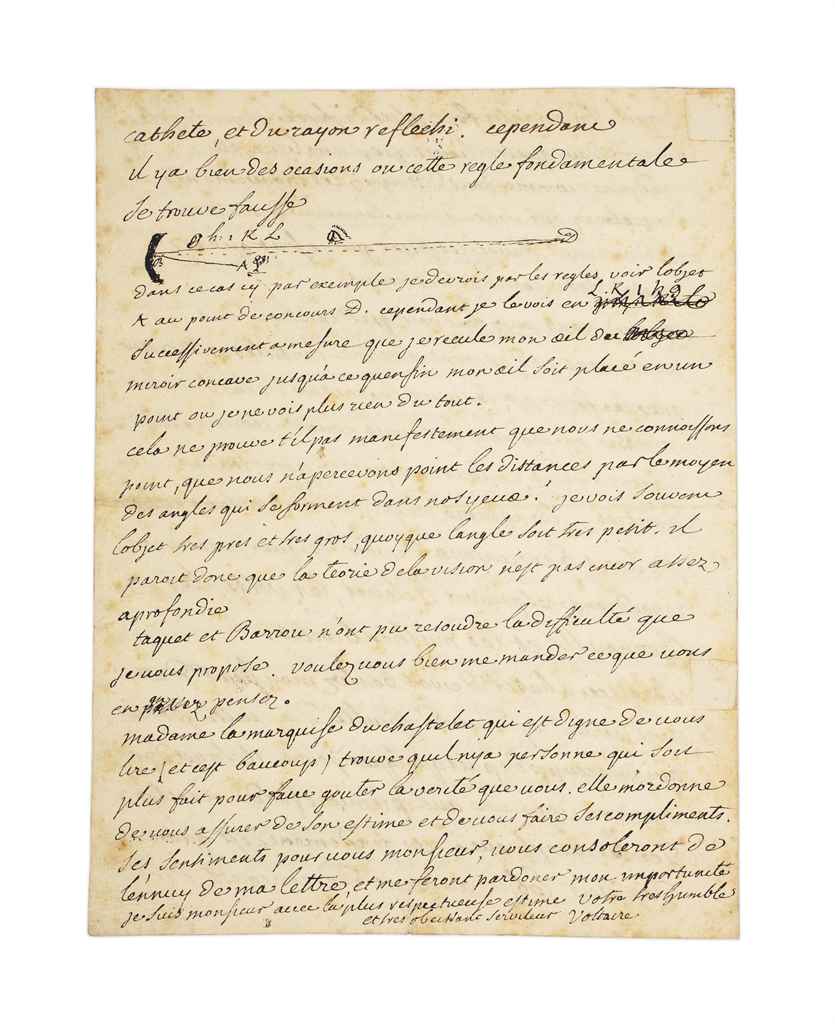 cathete, et du rayon reflechi. cependant
il ya bien des ocasions ou cette regle fondamentale
se trouve fausse
g h i K L
B A D
dans ce cas cy par exemple je devrois par les regles, voir lobjet
A au point de concours D. cependant je le vois en L. K i h g
successivement a mesure que je recule mon œil du
miroir concave jusqua ce quenfin mon œil soit placé en un
point ou je ne vois plus rien du tout.
cela ne prouve t'il pas manifestement que nous ne connoissons
point, que nous n'apercevons point les distances par le moyen
des angles qui se forment dans nos yeux? je vois souvent
lobjet tres pres et tres gros, quoyque langle soit tres petit. il
paroit donc que la teorie de la vision n'est pas encor assez
aprofondie
taquet et Barrou n'ont pu resoudre la difficulté que
je vous propose. voulez vous bien me mander ce que vous
en pensez.
madame la marquise du chastelet qui est digne de vous
lire (et c'est baucoup) trouve quil nya personne qui soit
plus fait pour faire gouter la verité que vous. elle m'ordonne
de vous assurer de son estime et de vous faire ses compliments.
ses sentiments pour vous monsieur, vous consoleront de
l'ennuy de ma lettre, et me feront pardoner mon importunité
je suis monsieur avec la plus respectueuse estime votre tres humble
et tres obeissant serviteur Voltaire